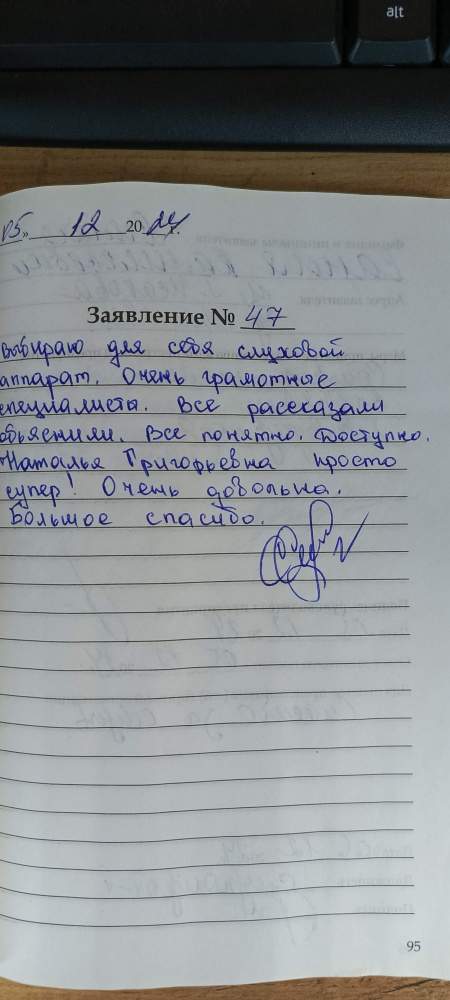 alt
05» 12 2024.
Заявление № 47
Выбираю для себя слуховой
аппарат. Очень грамотные
специалисты. Все рассказали
обьяснили. Все понятно. Доступно.
Наталья Григорьевна просто
супер! Очень довольна.
Большое спасибо.
95